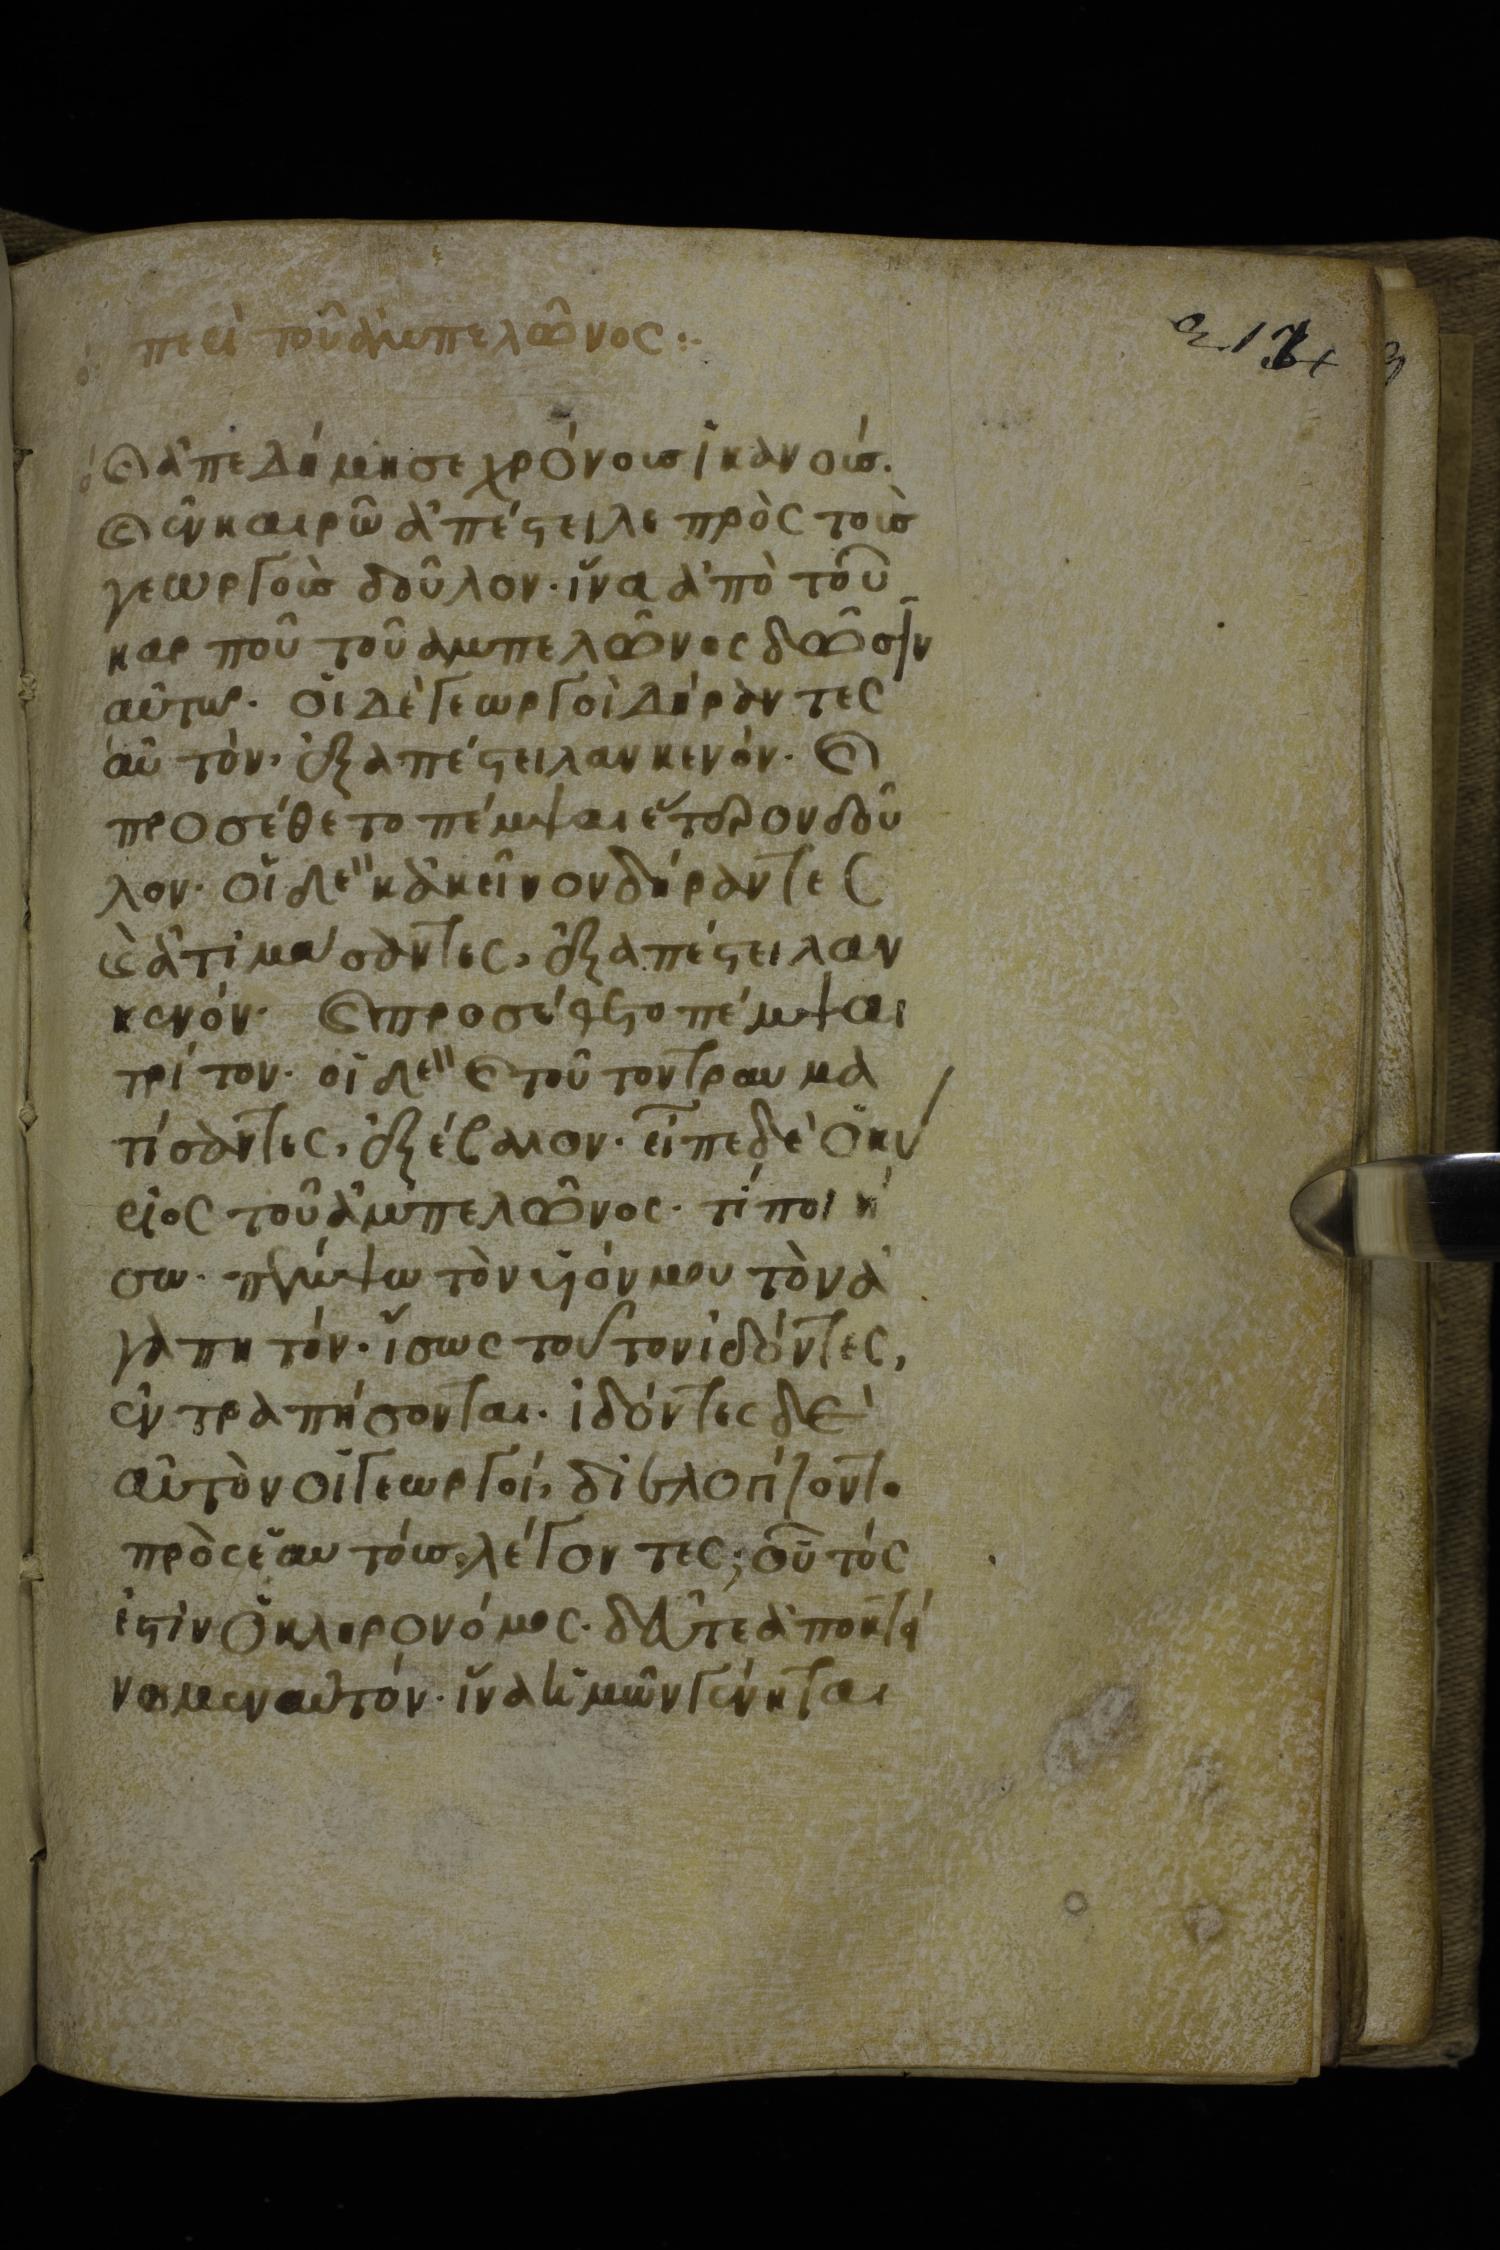 περὶ τοῦ ἀμπελῶνος :-
213
καὶ ἀπεδήμησε χρόνους ἱκανούς.
καὶ ἐν καιρῶ ἀπέστειλε πρὸς τοὺς
γεωργοὺς δοῦλον· ἵνα ἀπὸ τοῦ
καρποῦ τοῦ ἀμπελῶνος δῶσιν
αὐτῶ· οἱ δὲ γεωργοὶ δήραντες
αὐτὸν, ἐξαπέστειλαν κενόν· καὶ
προσέθετο πέμψαι ἕτερον δοῦ
λον· οἱ δὲ κἀκεῖνον δήραντες
καὶ ἀτιμάσαντες, ἐξαπέστειλαν
κενόν· καὶ προσέθετο πέμψαι
τρίτον· οἱ δὲ καὶ τοῦτον τραυμα
τίσαντες, ἐξέβαλον· εἶπε δὲ ὁ κύ
ριος τοῦ ἀμπελῶνος· τί ποιή
σω· πέμψω τὸν υἱόν μου τὸν ἀ
γαπητόν· ἴσως τοῦτον ἰδόντες,
ἐντραπήσονται· ἰδόντες δὲ
αὐτὸν οἱ γεωργοί, διελογίζοντο
πρὸς ἑαυτούς, λέγοντες; οὗτός
ἐστιν ὁ κληρονόμος· δεῦτε ἀποκτέ
νομεν αὐτόν· ἵνα ἡμῶν γένηται